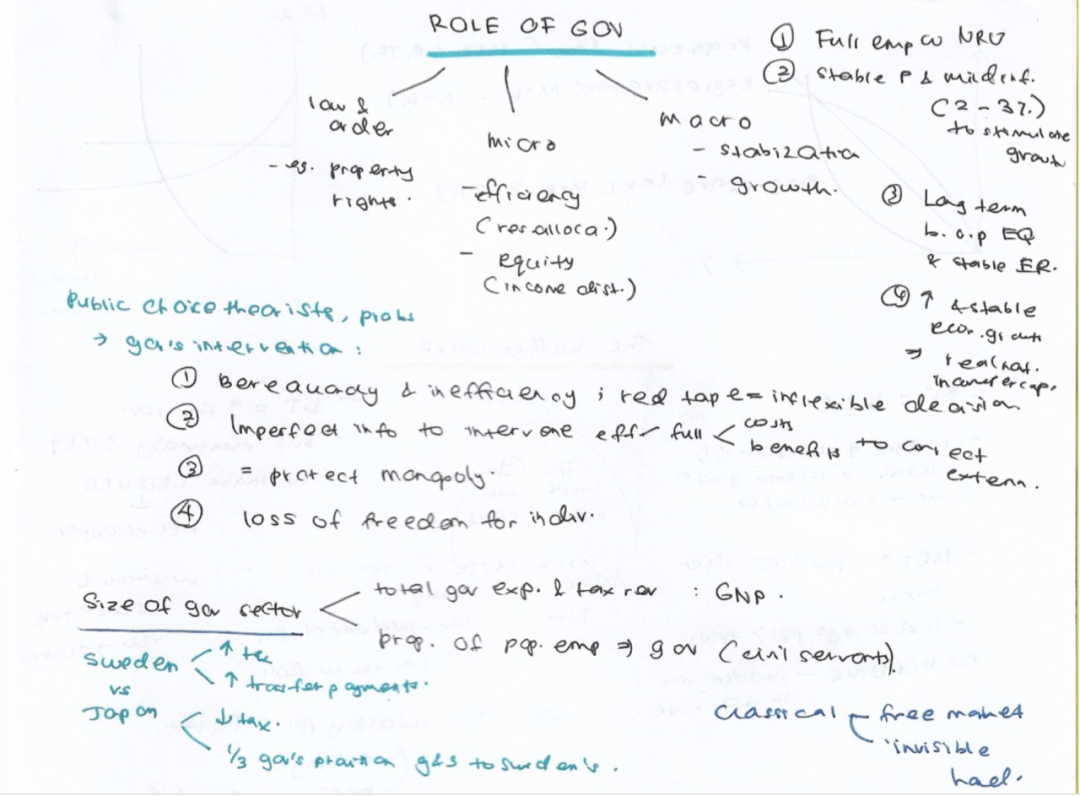 ROLE OF GOV
law &
order
- eg. property
rights.
micro
- efficiency
(res. alloca.)
- equity
(income dist.)
macro
- stabilization
- growth.
① Full emp @ NRU
② stable P & mild inf.
(2-3%)
to stimulate
growth
③ Long term
b.o.p EQ
& stable ER.
④ ↑ & stable
econ. growth
⇒ real nat.
income per cap.
Public choice theorists, probs
→ gov's intervention :
① bereaucracy & inefficiency ; red tape = inflexible decision
② Imperfect info to intervene eff / full < costs
benefits to correct
extern.
③ = protect monopoly.
④ loss of freedom for indiv.
Size of gov sector < total gov exp. & tax rev : GNP.
prop. of pop. emp ⇒ gov (civil servants).
Sweden < ↑ tax
↑ transfer payments.
vs
Japan < ↓ tax.
1/3 gov's g&s to Sweden's.
Classical - free market
- 'invisible